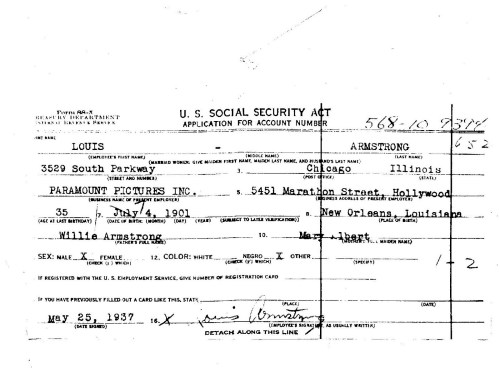 Form SS-5
TREASURY DEPARTMENT
INTERNAL REVENUE SERVICE
U. S. SOCIAL SECURITY ACT
APPLICATION FOR ACCOUNT NUMBER
LOUIS - ARMSTRONG
(EMPLOYEE'S FIRST NAME) (MIDDLE NAME) (LAST NAME)
(MARRIED WOMEN: GIVE MAIDEN FIRST NAME, MAIDEN LAST NAME, AND HUSBAND'S LAST NAME)
3529 South Parkway 3. Chicago Illinois
(STREET AND NUMBER) (POST OFFICE) (STATE)
PARAMOUNT PICTURES INC. 5. 5451 Marathon Street, Hollywood
(BUSINESS NAME OF PRESENT EMPLOYER) (BUSINESS ADDRESS OF PRESENT EMPLOYER)
35 7. July 4, 1901 8. New Orleans, Louisiana
(AGE AT LAST BIRTHDAY) (DATE OF BIRTH: (MONTH) (DAY) (YEAR) (SUBJECT TO LATER VERIFICATION) (PLACE OF BIRTH)
Willie Armstrong 10. Mary Albert
(FATHER'S FULL NAME) MAIDEN NAME)
SEX: MALE X FEMALE 12. COLOR: WHITE NEGRO X OTHER
(CHECK (✓) WHICH) (CHECK (✓) WHICH) (SPECIFY)
1-2
IF REGISTERED WITH THE U. S. EMPLOYMENT SERVICE, GIVE NUMBER OF REGISTRATION CARD
IF YOU HAVE PREVIOUSLY FILLED OUT A CARD LIKE THIS, STATE
(PLACE) (DATE)
May 25, 1937 16. X Louis Armstrong
(DATE SIGNED) (EMPLOYEE'S SIGNATURE, AS USUALLY WRITTEN)
DETACH ALONG THIS LINE